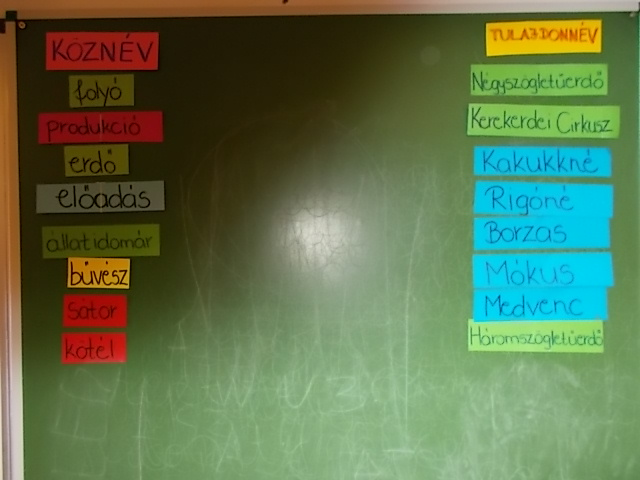 KÖZNÉV
folyó
produkció
erdő
előadás
állatidomár
bűvész
sátor
kötél
TULAJDONNÉV
Négyszögletűerdő
Kerekerdei Cirkusz
Kakukkné
Rigóné
Borzas
Mókus
Medvenc
Háromszögletűerdő